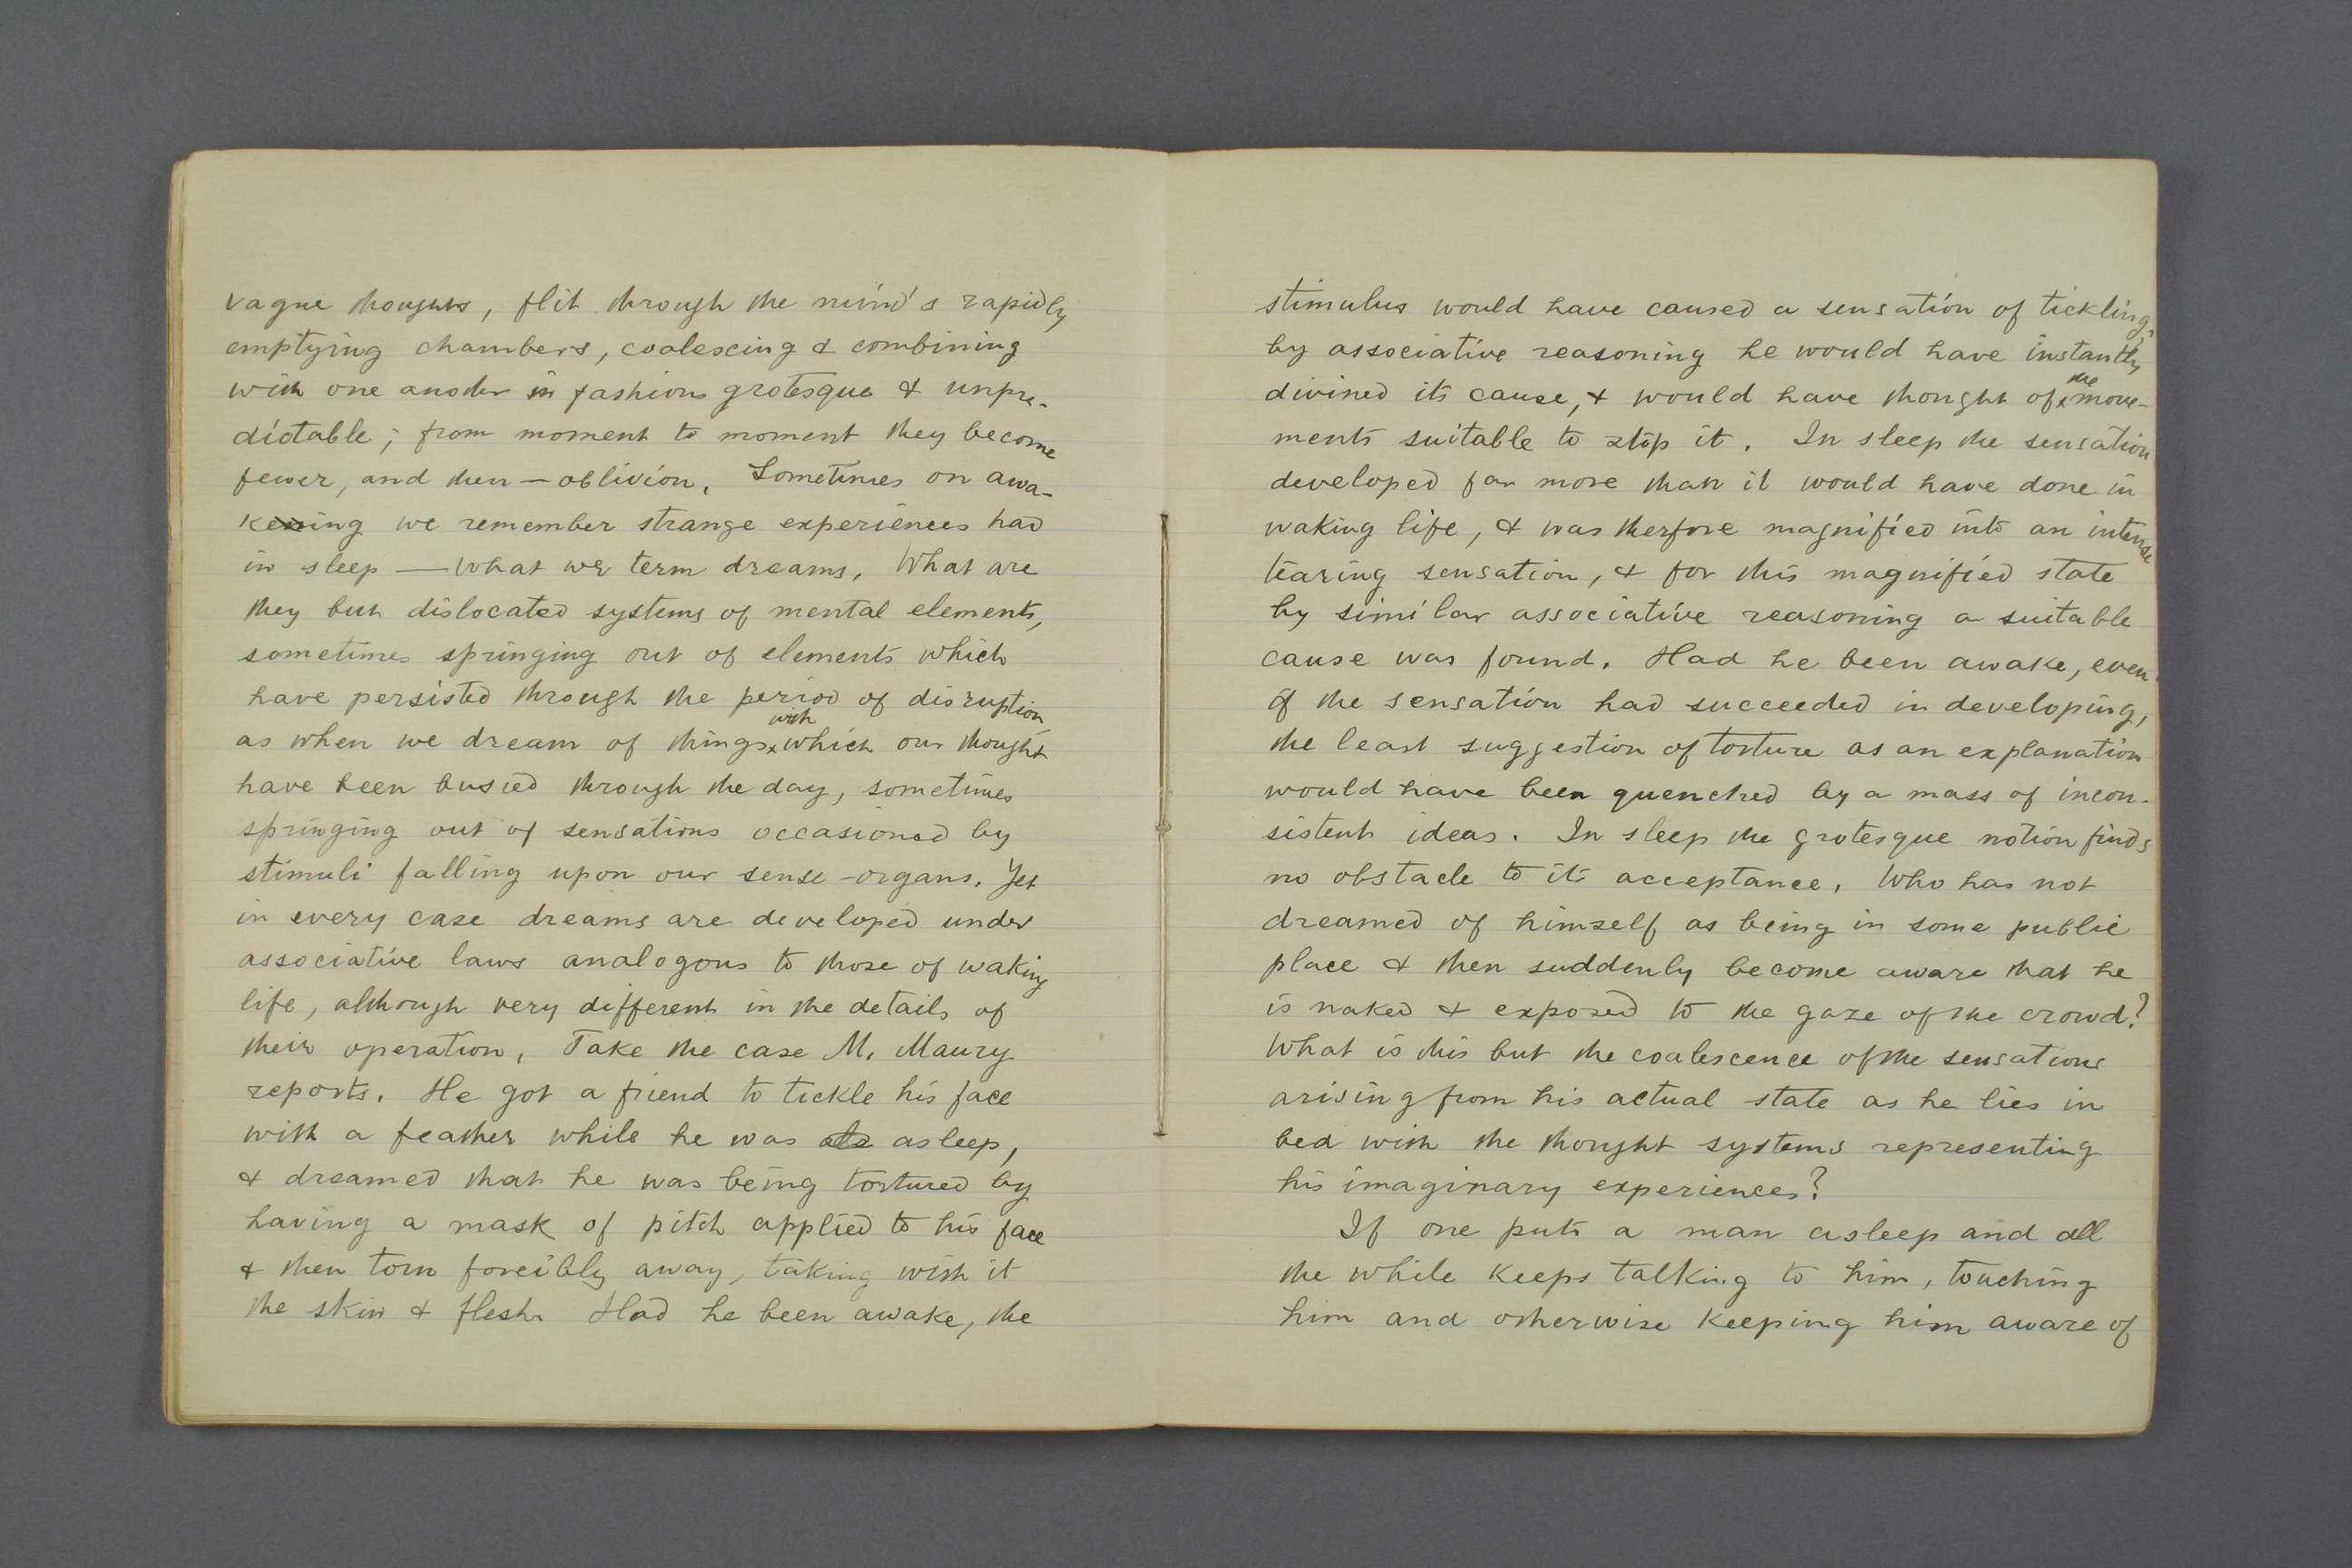 vague thoughts, flit through the mind's rapidly
emptying chambers, coalescing & combining
with one another in fashions grotesque & unpre-
dictable; from moment to moment they become
fewer, and then — oblivion. Sometimes on awa-
kening we remember strange experiences had
in sleep — what we term dreams. What are
they but dislocated systems of mental elements,
sometimes springing out of elements which
have persisted through the period of disruption
as when we dream of things with which our thought
have been busied through the day, sometimes
springing out of sensations occasioned by
stimuli falling upon our sense-organs. Yet
in every case dreams are developed under
associative laws analogous to those of waking
life, although very different in the details of
their operation. Take the case M. Maury
reports. He got a friend to tickle his face
with a feather while he was asleep,
& dreamed that he was being tortured by
having a mask of pitch applied to his face
& then torn forcibly away, taking with it
the skin & flesh. Had he been awake, the
stimulus would have caused a sensation of tickling,
by associative reasoning he would have instantly
divined its cause, & would have thought of the move-
ments suitable to stop it. In sleep the sensation
developed far more than it would have done in
waking life, & was therfore magnified into an intense
tearing sensation, & for this magnified state
by similar associative reasoning a suitable
cause was found. Had he been awake, even
if the sensation had succeeded in developing,
the least suggestion of torture as an explanation
would have been quenched by a mass of incon-
sistent ideas. In sleep the grotesque notion finds
no obstacle to its acceptance. Who has not
dreamed of himself as being in some public
place & then suddenly become aware that he
is naked & exposed to the gaze of the crowd?
What is this but the coalescence of the sensations
arising from his actual state as he lies in
bed with the thought systems representing
his imaginary experiences?
If one puts a man asleep and all
the while keeps talking to him, touching
him and otherwise keeping him aware of